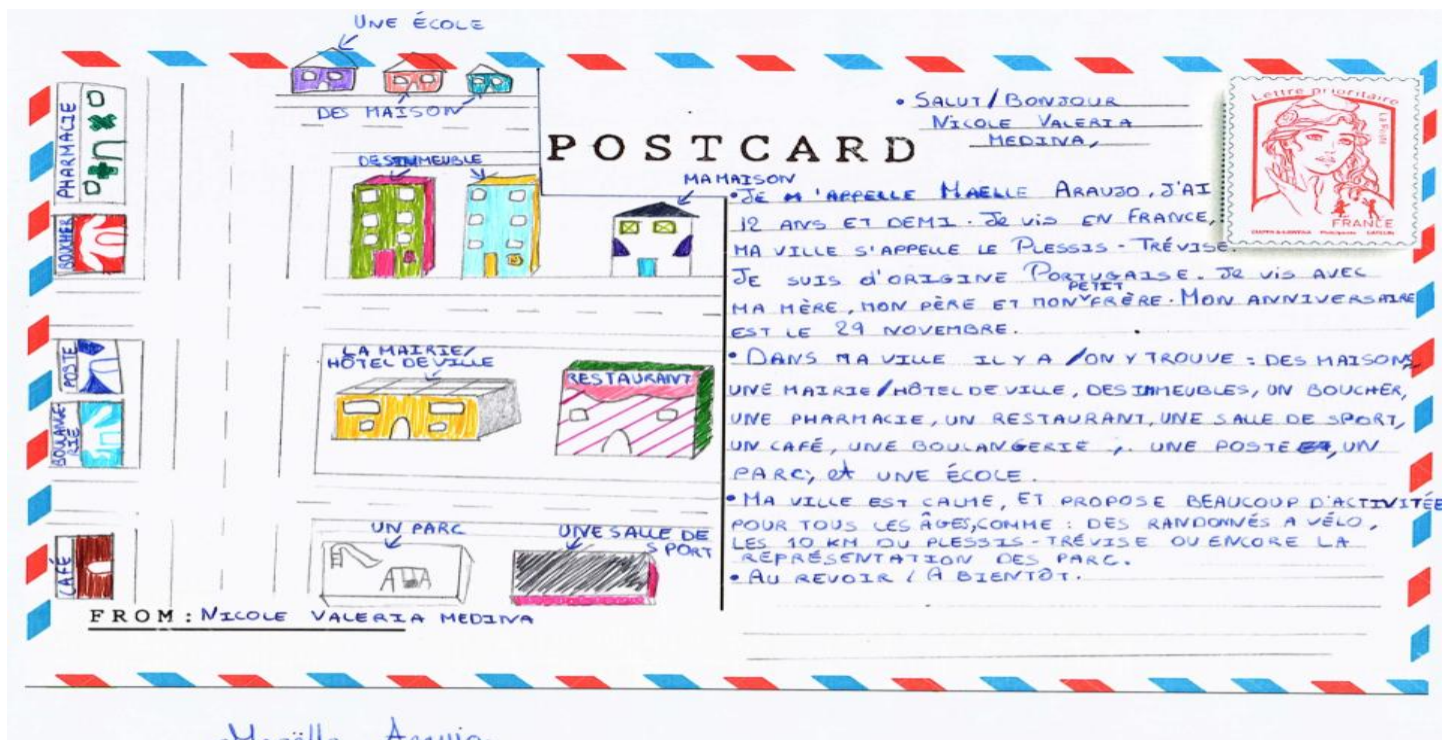 UNE ÉCOLE
DES MAISON
PHARMACIE
BOUCHER
DES IMMEUBLE
MA MAISON
POSTE
BOULANGE
RIE
LA MAIRIE/
HÔTEL DE VILLE
RESTAURANT
CAFÉ
UN PARC
UNE SALLE DE
SPORT
FROM: NICOLE VALERIA MEDINA
POSTCARD
• SALUT/BONJOUR
NICOLE VALERIA
MEDINA,
Lettre prioritaire
La Poste
FRANCE
• JE M'APPELLE MAELLE ARAUJO, J'AI
12 ANS ET DEMI. JE VIS EN FRANCE,
MA VILLE S'APPELLE LE PLESSIS-TRÉVISE.
JE SUIS d'ORIGINE PORTUGAISE. JE VIS AVEC
MA MÈRE, MON PÈRE ET MON PETIT FRÈRE. MON ANNIVERSAIRE
EST LE 29 NOVEMBRE.
• DANS MA VILLE IL Y A /ON Y TROUVE : DES MAISONS,
UNE MAIRIE/HÔTEL DE VILLE, DES IMMEUBLES, UN BOUCHER,
UNE PHARMACIE, UN RESTAURANT, UNE SALLE DE SPORT,
UN CAFÉ, UNE BOULANGERIE, UNE POSTE, UN
PARC, et UNE ÉCOLE.
• MA VILLE EST CALME, ET PROPOSE BEAUCOUP D'ACTIVITÉE
POUR TOUS LES ÂGES, COMME : DES RANDONNÉS A VÉLO,
LES 10 KM DU PLESSIS-TRÉVISE OU ENCORE LA
REPRÉSENTATION DES PARC.
• AU REVOIR / A BIENTÔT.